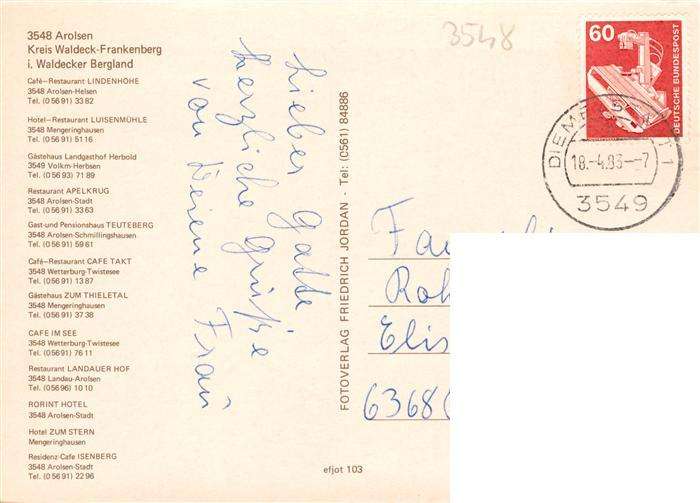 3548 Arolsen
Kreis Waldeck-Frankenberg
i. Waldecker Bergland
Café-Restaurant LINDENHÖHE
3548 Arolsen-Helsen
Tel. (0 56 91) 33 82
Hotel-Restaurant LUISENMÜHLE
3548 Mengeringhausen
Tel. (0 56 91) 51 16
Gästehaus Landgasthof Herbold
3549 Volkm-Herbsen
Tel. (0 56 93) 71 89
Restaurant APELKRUG
3548 Arolsen-Stadt
Tel. (0 56 91) 33 63
Gast-und Pensionshaus TEUTEBERG
3548 Arolsen-Schmillingshausen
Tel. (0 56 91) 59 61
Café-Restaurant CAFE TAKT
3548 Wetterburg-Twistesee
Tel. (0 56 91) 13 87
Gästehaus ZUM THIELETAL
3548 Mengeringhausen
Tel. (0 56 91) 37 38
CAFE IM SEE
3548 Wetterburg-Twistesee
Tel. (0 56 91) 76 11
Restaurant LANDAUER HOF
3548 Landau-Arolsen
Tel. (0 56 96) 10 10
RORINT HOTEL
3548 Arolsen-Stadt
Hotel ZUM STERN
Mengeringhausen
Residenz-Cafe ISENBERG
3548 Arolsen-Stadt
Tel. (0 56 91) 22 96
Lieber Gatte
herzliche Grüße
von Deiner Frau
FOTOVERLAG FRIEDRICH JORDAN - Tel: (0561) 84886
efjot 103
3548
60
DEUTSCHE BUNDESPOST
18.-4.83--7
3549
Fa
Roh
Elis
6368